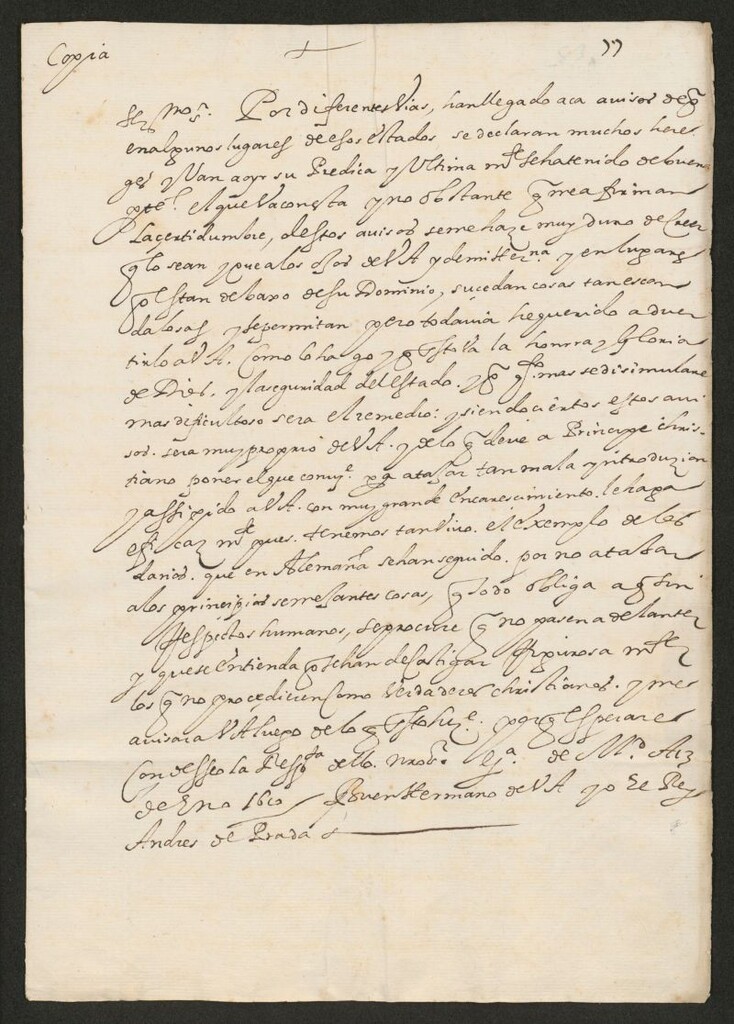 Copia
Ser.mo s.r Por diferentes vias, han llegado aca avisos de q
en algunos lugares de esos estados se declaran muchos here
ges y van a oyr su Predica y Ultima m.te se ha tenido de buena
p.te el que va con esta y no obstante q me afirman
La certidumbre, destos avisos se me haze muy duro de Creer
q lo sean y que a los ojos de V A y de mi Her.na y en lugares
q estan debaxo de su Dominio, sucedan cosas tan escan
dalosas y se permitan pero todavia he querido adver
tirlo a V A. Como lo hago y q esto va la honrra y Gloria
de Dios, y la seguridad del estado. y q q.to mas se disimulare
mas dificultoso sera el remedio: y siendo ciertos estos avi
sos. sera muy proprio de V A. y de lo q deve a Principe chris-
tiano poner el que conv.e p.a atajar tan mala yntroduzion
y assi pido a V A. con muy grande encarescimiento. lo haga
eficaz m.te pues. tenemos tan vivo. el exemplo de los
daños. que en Alemaña se han seguido. por no atajar
a los principios semejantes cosas, q todo obliga a q sin
Respectos humanos, se procure q no pasen adelante
y que se entienda q se han de castigar Rigurosa m.te
los q no procedieren Como verdaderos christianos. y me
avisara V A luego de lo q esto hiz.e porq esperare
Con desseo la Resp.ta dello. nro s.r de M.d A
de En.o 1610 Buen Hermano de V A yo El Rey
Andres de Prada